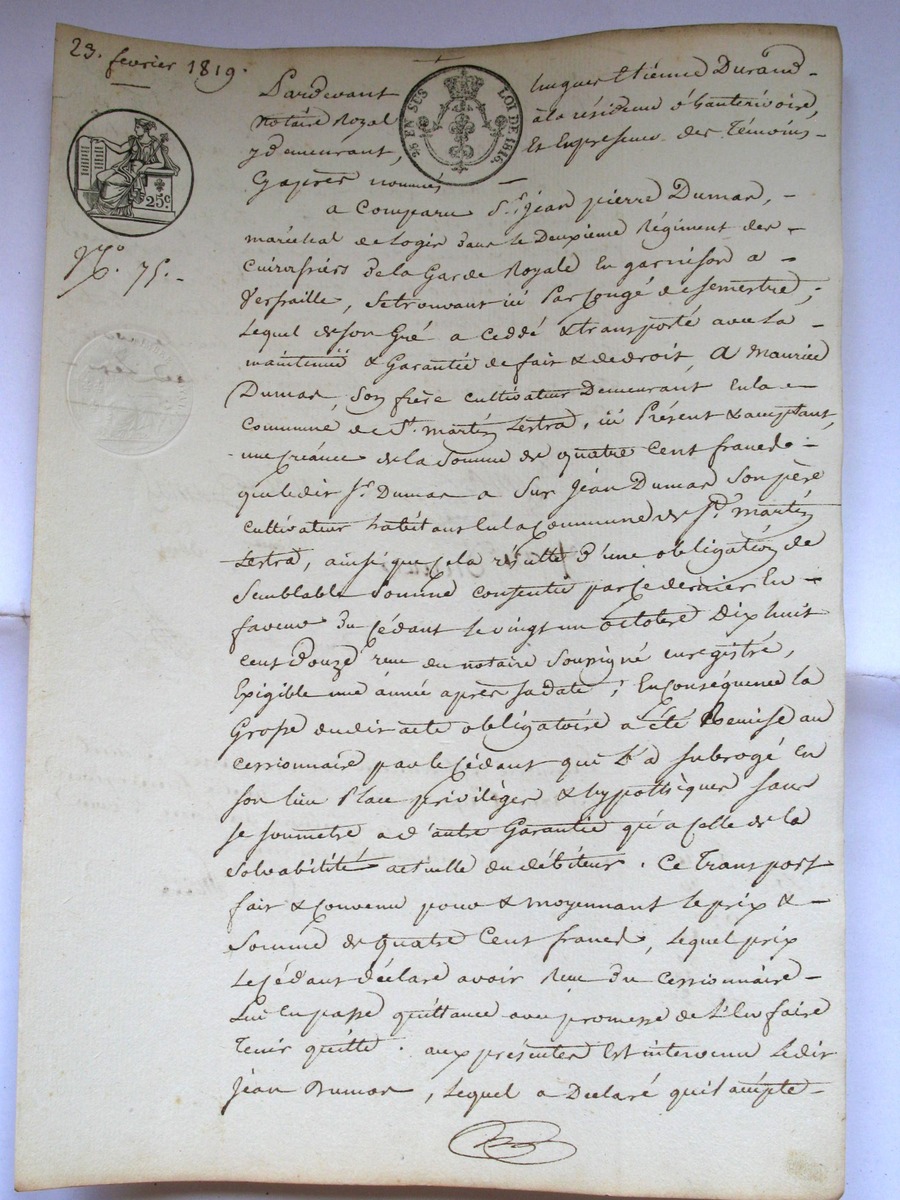 23. fevrier 1819.
25 EN SUS LOI DE 1816.
25c
No. 75.
Pardevant hugues Etienne Durand
notaire Royal à la résidence d'hauterivoire,
y demeurant, Et En présence des Témoins
Cy après nommés
a Comparu Sr. jean pierre Dumas,
maréchal de Logis dans le Deuxieme Régiment des
Cuirassiers de la Garde Royale En garnison a
Versaille, se trouvant ici Par Congé de semestre,
Lequel de son Gré a Ceddé & transporté avec La
maintenüe & Garantie de fait & de droit A Maurice
Dumas, son frère cultivateur Demeurant En la
Commune de St. martin Lestra, ici Présent & acceptant,
une Créance de la Somme de quatre Cent francs
que le dit Sr. Dumas a Sur Jean Dumas Son père
Cultivateur habitant En la Commune de St. martin
Lestra, ainsi que Cela résulte d'une obligation de
Semblable Somme Consentie par Ce dernier En
faveur du Cédant le vingt un octobre Dix huit
Cent Douze reçu du notaire Soussigné Enregistré,
Exigible une année après sa date; En Conséquence la
Grosse du dit acte obligatoire a été Remise au
Cessionnaire par le Cédant qui L'a subrogé En
son lieu Place privilèges & hypothèques sans
se soumetre a d'autre Garantie qu'a Celle de la
Solvabilité actuelle du débiteur. Ce Transport
fait & Convenu pour & moyennant le prix &
Somme de quatre Cent francs, Lequel prix
Le Cédant déclare avoir Reçu du Cessionnaire
Lui En passe quittance avec promesse de L'En faire
Tenir quitte. aux présentes Est intervenu Le dit
Jean Dumas, Lequel a Déclaré qu'il accepte